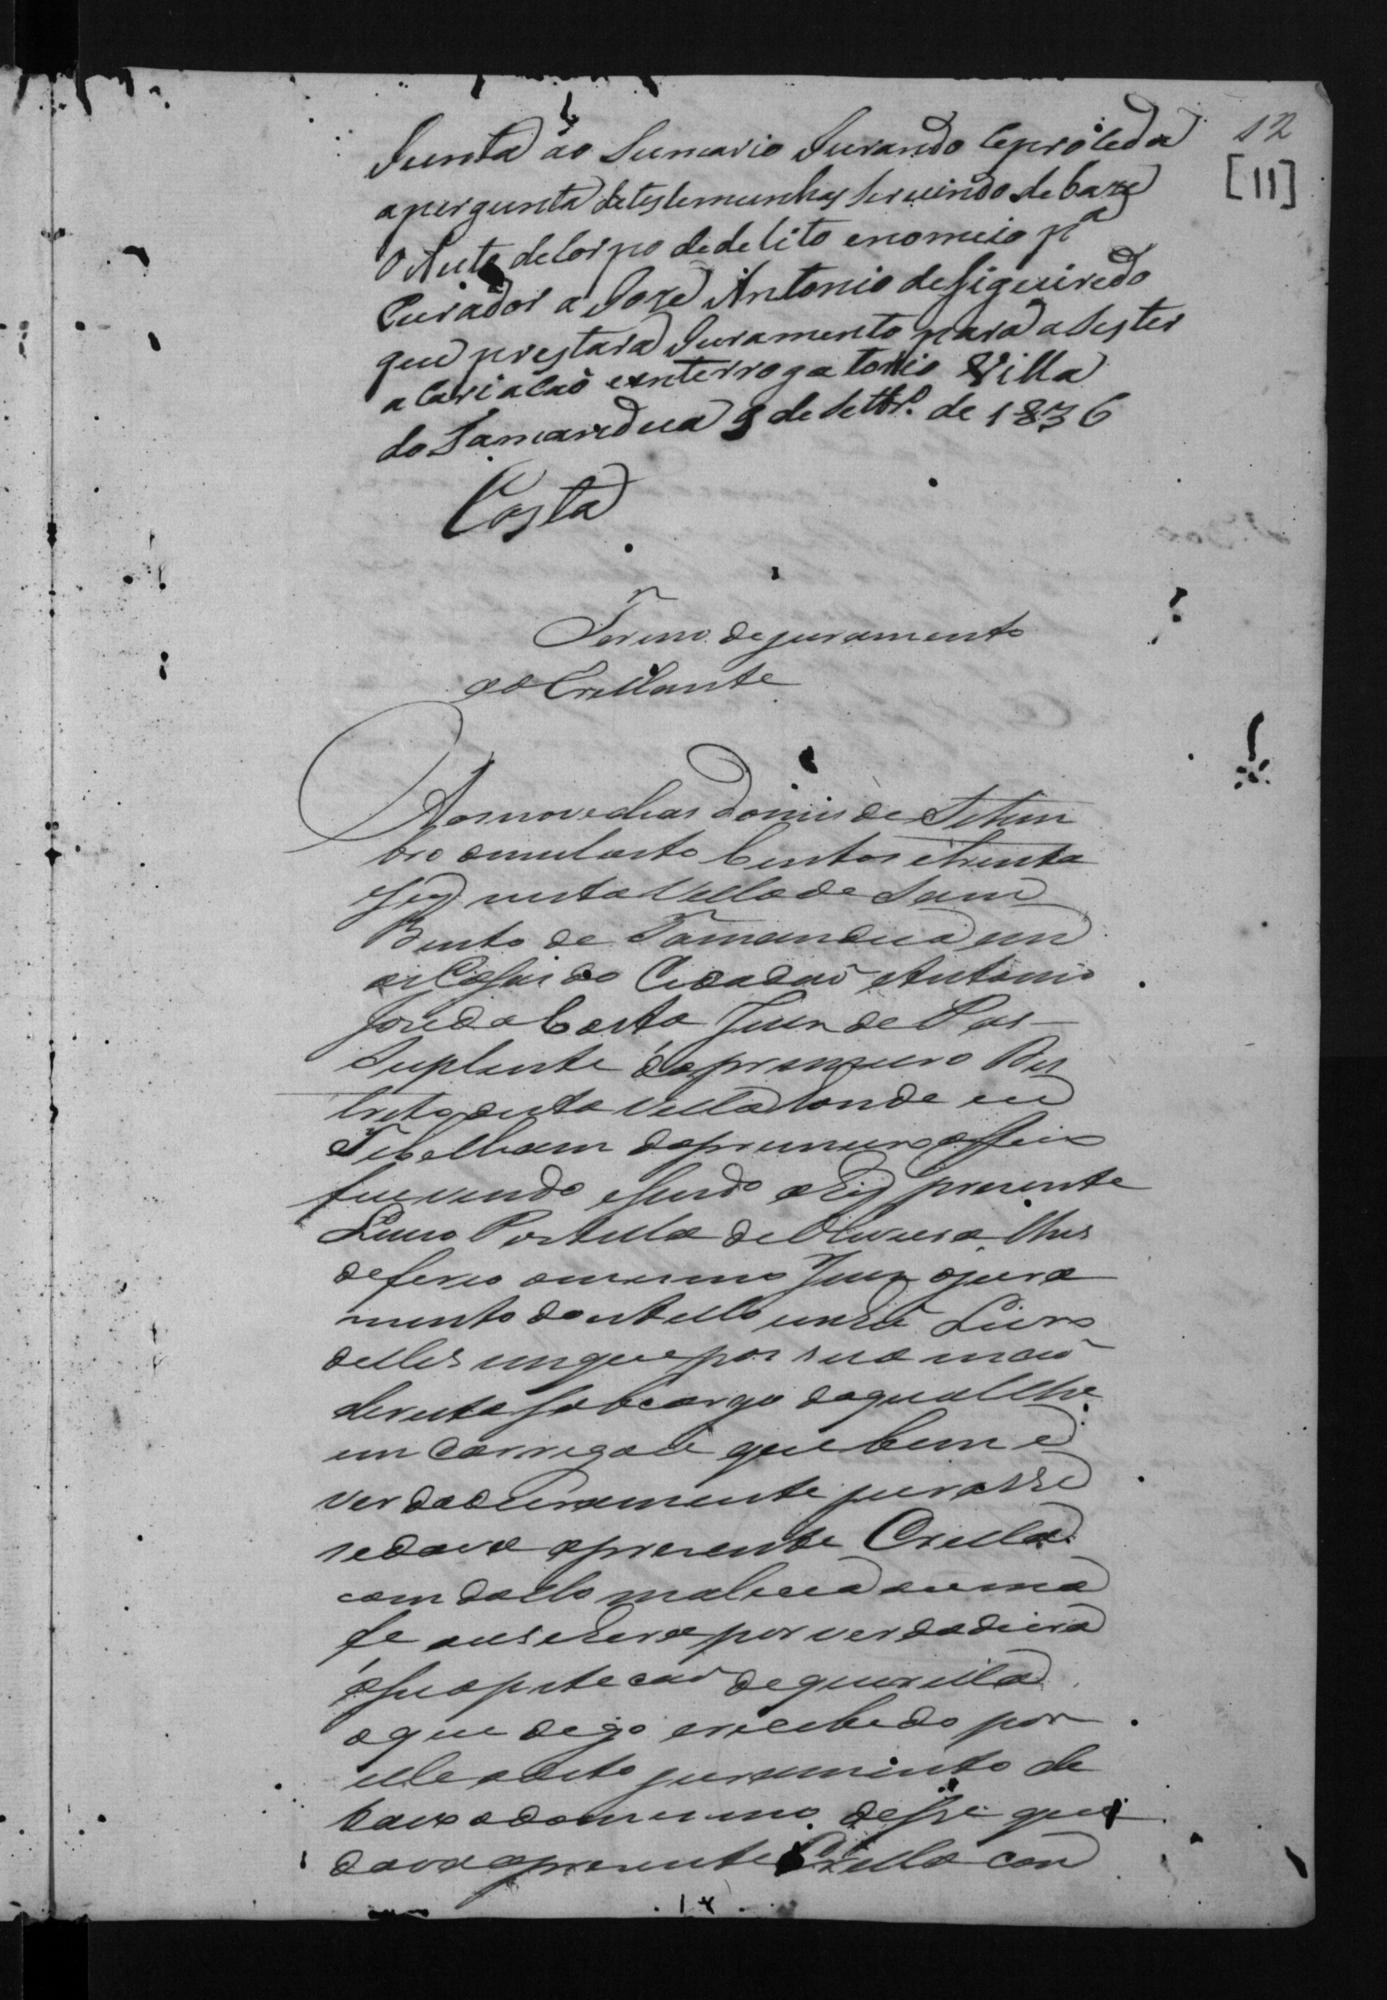 12
[11]
Junta ao Sumario Jurando Seproseda
apergunta detestemunhas servindo de baze
O Auto de Corpo dedelito enomeio pa
Curador a Joze Antonio de Figueiredo
que prestara Juramento para asestir
a Cariacaõ enterrogatorio Villa
do Tamandua 9 de Settbrº. de 1836
Costa
Termo dejuramento
ao Crellante
Aos nove dias domis de Setem
bro demil oito Centos etrinta
eseis nesta Villa de Sam
Bento de Tamandua em
as Casas do Cidadaõ Antonio
Joze da Costa Juis de Pas
Suplente do primeiro Dis
trito desta Villa donde eu
Tabelliam do primeiro officio
fui vindo esendo ahi prezente
Portella de Oliveira lhes
deferio omesmo Juis ojura
mento dos Livro
delles em que pos sua maõ
direita Sob cargo doqual lhe
em Carregou que bem e
verdadeiramente jurasse
sedava aprezente Crella
com dollo malicia ou má
fe por verdadeira
asua peticaõ dequerella
o que digo erecebido por
elle odito juramento de
baixo domesmo disse que
dava aprezente Crella com